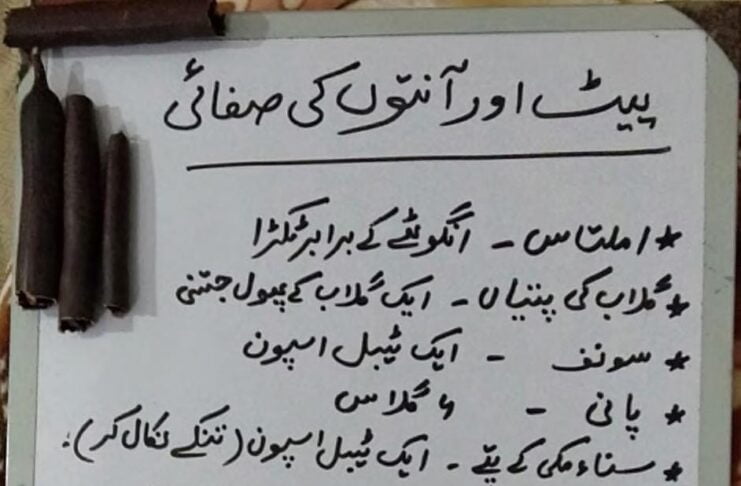 پیٹ اور آنتوں کی صفائی
★ املتاس - انگوٹھے کے برابر ٹکڑا
★ گلاب کی پتیاں - ایک گلاب کے پھول جتنی
★ سونف - ایک ٹیبل اسپون
★ پانی - ۶ گلاس
★ سناء مکی کے پتے - ایک ٹیبل اسپون (تنکے نکال کر)۔